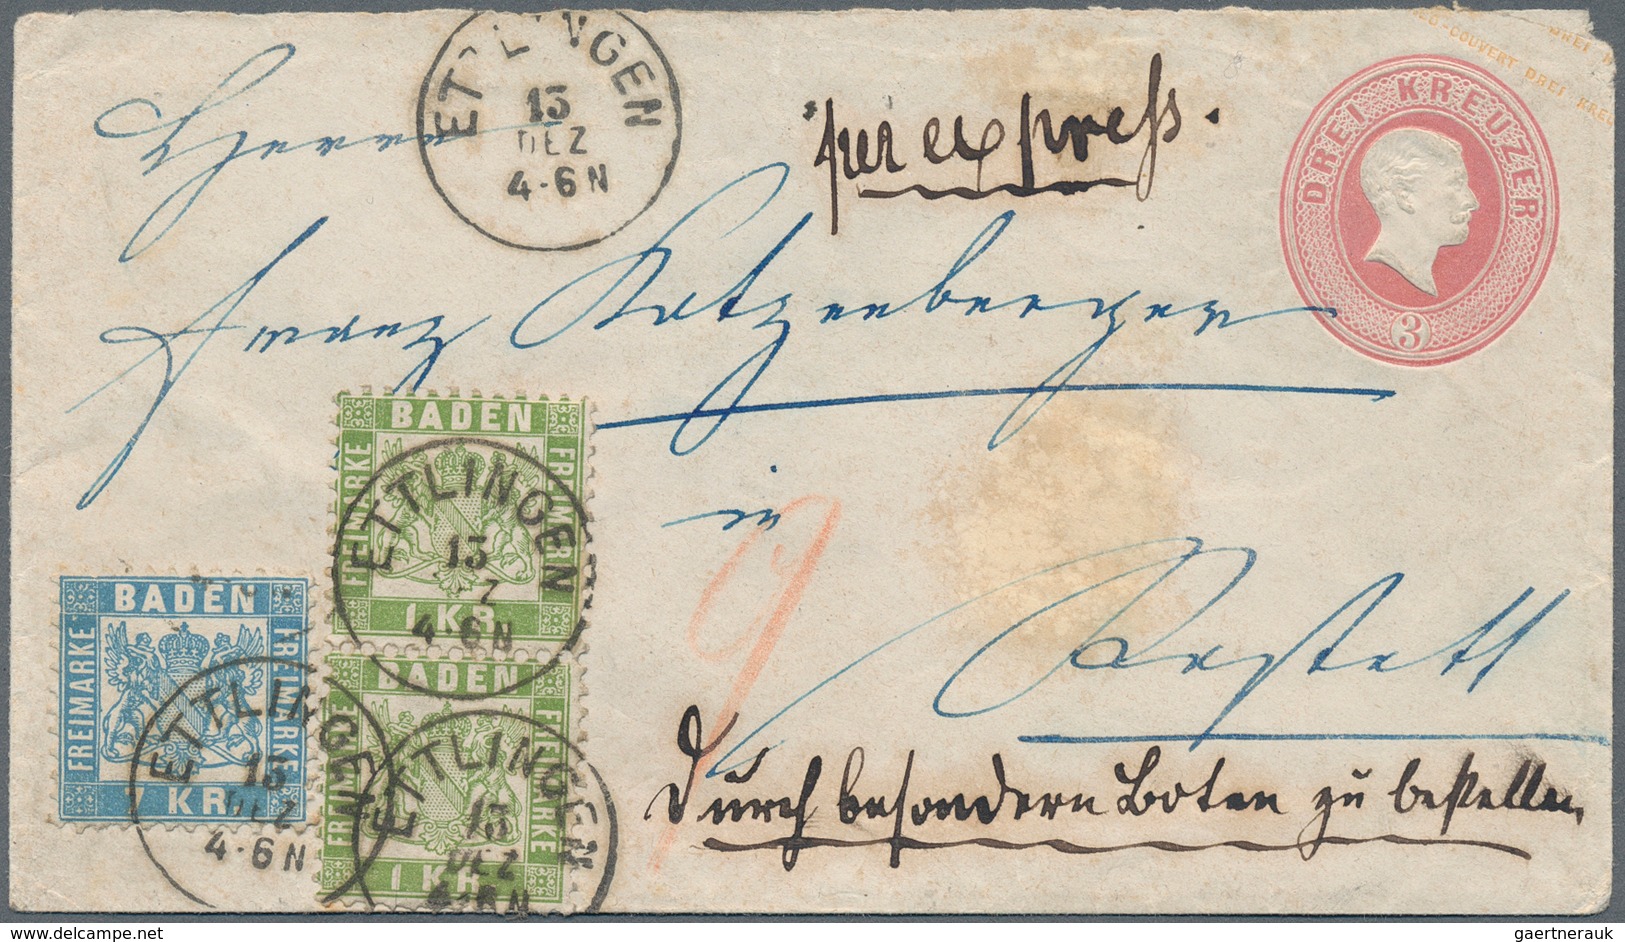 ETTLINGEN
13
DEZ
4-6N
per express.
COUVERT DREI KREU
DREI KREUZER
3
Herrn
Franz Katzenberger
in
Rastatt
Durch besondern Boten zu bestellen
BADEN
FREIMARKE
FREIMARKE
1 KR.
ETTLINGEN
13
DEZ
4-6N
BADEN
FREIMARKE
FREIMARKE
7 KR.
ETTLINGEN
13
DEZ
4-6N
BADEN
FREIMARKE
FREIMARKE
1 KR.
ETTLINGEN
13
DEZ
4-6N
www.delcampe.net
gaertnerauk